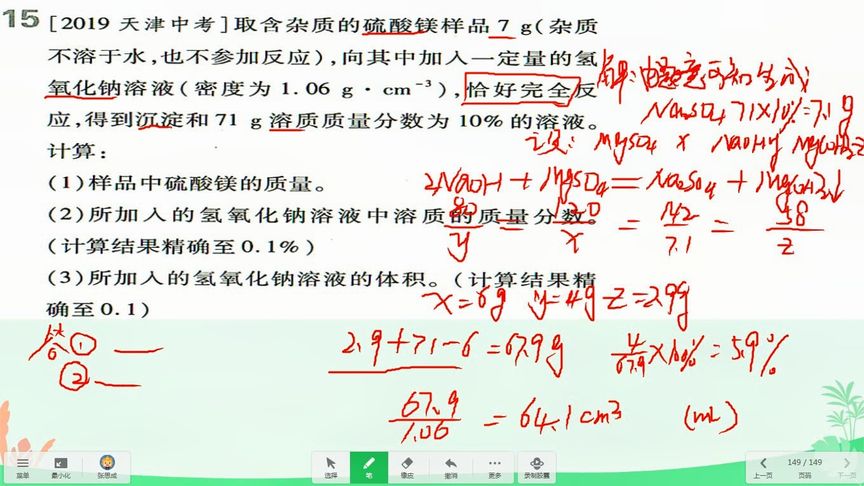 15 [2019 天津中考]取含杂质的硫酸镁样品 7 g(杂质
不溶于水,也不参加反应),向其中加入一定量的氢
氧化钠溶液(密度为 1.06 g·cm⁻³),恰好完全反
应,得到沉淀和 71 g 溶质质量分数为 10% 的溶液。
计算:
(1)样品中硫酸镁的质量。
(2)所加入的氢氧化钠溶液中溶质的质量分数。
(计算结果精确至 0.1%)
(3)所加入的氢氧化钠溶液的体积。(计算结果精
确至 0.1)
解:由题意可知生成
Na₂SO₄ 71×10%=7.1g
设: MgSO₄ x NaOH y Mg(OH)₂ z
2NaOH + MgSO₄ = Na₂SO₄ + Mg(OH)₂↓
80/y = 120/x = 142/7.1 = 58/z
x=6g y=4g z=2.9g
答① —
② —
2.9+71-6=67.9g 4/67.9×100%=5.9%
67.9/1.06 = 64.1cm³ (mL)
菜单 最小化 张思成 选择 笔 橡皮 撤消 更多 录制胶囊 上一页 149/149 页码 下一页